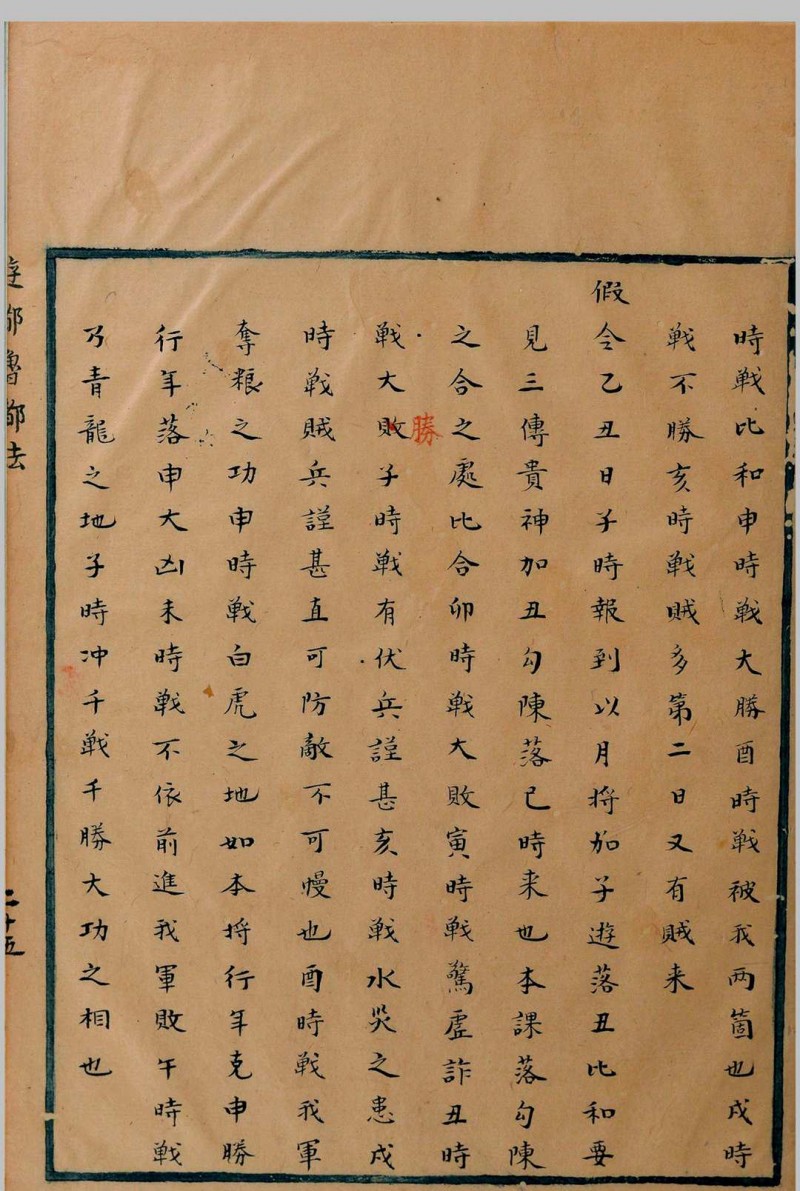 時戦比和申時戦大勝酉時戦被我两箇也戌時
戦不勝亥時戦賊多第二日又有賊来
假令乙丑日子時報到以月将加子遊落丑比和要
見三傳貴神加丑勾陳落已時来也本課落勾陳
之合之處比合卯時戦大敗寅時戦驚虚詐丑時
戦大敗子時戦有伏兵謹甚亥時戦水災之患戌
勝
時戦賊兵謹甚直可防敵不可慢也酉時戦我軍
奪粮之功申時戦白虎之地如本将行年克申勝
行年落申大凶未時戦不依前進我軍敗午時戦
乃青龍之地子時冲千戦千勝大功之相也
遊都魯都法
二十五